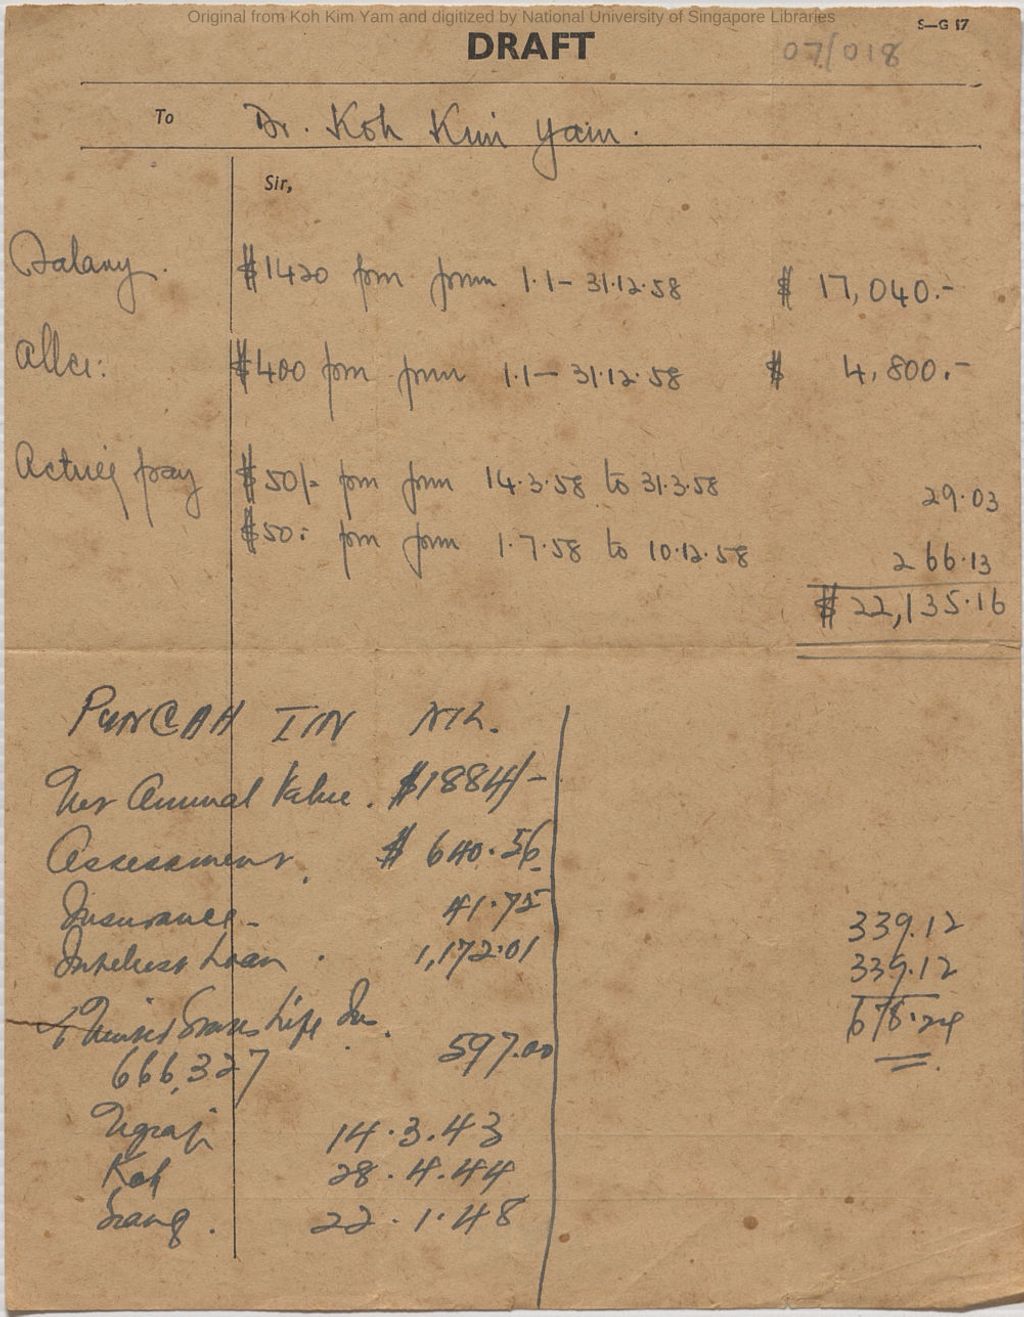 Original from Koh Kim Yam and digitized by National University of Singapore Libraries
S—G 17
DRAFT
07/018
To Dr. Koh Kim Yam.
Sir,
Salary. $1420 pm from 1.1 – 31.12.58 $ 17,040.-
Allce: $400 pm from 1.1 – 31.12.58 $ 4,800.-
Acting pay $50/- pm from 14.3.58 to 31.3.58 29.03
$50: pm from 1.7.58 to 10.12.58 266.13
$ 22,135.16
PUNCAH NIL.
Net Annual Value. $1884/-
Assessment. $ 640.56
Insurance - 41.75
Interest Loan. 1,172.01
339.12
339.12
678.24
Life Ins.
666,327 597.00
14.3.43
Koh 28.4.44
22.1.48